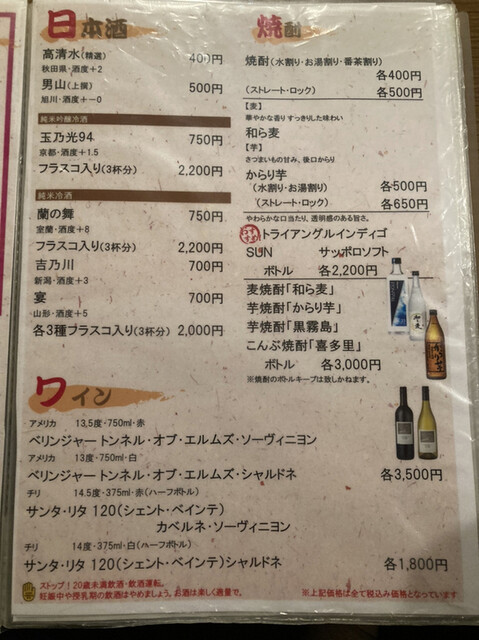 日本酒
高清水(精選) 400円
秋田県・酒度+2
男山(上撰) 500円
旭川・酒度+-0
純米吟醸冷酒
玉乃光94 750円
京都・酒度+1.5
フラスコ入り(3杯分) 2,200円
純米冷酒
蘭の舞 750円
室蘭・酒度+8
フラスコ入り(3杯分) 2,200円
吉乃川 700円
新潟・酒度+3
宴 700円
山形・酒度+5
各3種フラスコ入り(3杯分) 2,000円
焼酎
焼酎(水割り・お湯割り・番茶割り)
各400円
(ストレート・ロック) 各500円
【麦】
華やかな香り すっきりした味わい
和ら麦
【芋】
さつまいもの甘み、後口からり
からり芋
(水割り・お湯割り) 各500円
(ストレート・ロック) 各650円
やわらかな口当たり、透明感のある旨さ。
おすすめ トライアングルインディゴ
SUN サッポロソフト
ボトル 各2,200円
麦焼酎「和ら麦」
芋焼酎「からり芋」
芋焼酎「黒霧島」
こんぶ焼酎「喜多里」
ボトル 各3,000円
※焼酎のボトルキープは致しかねます。
ワイン
アメリカ 13,5度・750ml・赤
ベリンジャートンネル・オブ・エルムズ・ソーヴィニヨン
アメリカ 13度・750ml・白
ベリンジャートンネル・オブ・エルムズ・シャルドネ
各3,500円
チリ 14.5度・375ml・赤(ハーフボトル)
サンタ・リタ 120(シェント・ベインテ)
カベルネ・ソーヴィニヨン
チリ 14度・375ml・白(ハーフボトル)
サンタ・リタ 120(シェント・ベインテ)シャルドネ 各1,800円
ストップ!20歳未満飲酒・飲酒運転。
妊娠中や授乳期の飲酒はやめましょう。お酒は楽しく適量で。
※上記価格は全て税込み価格となっています